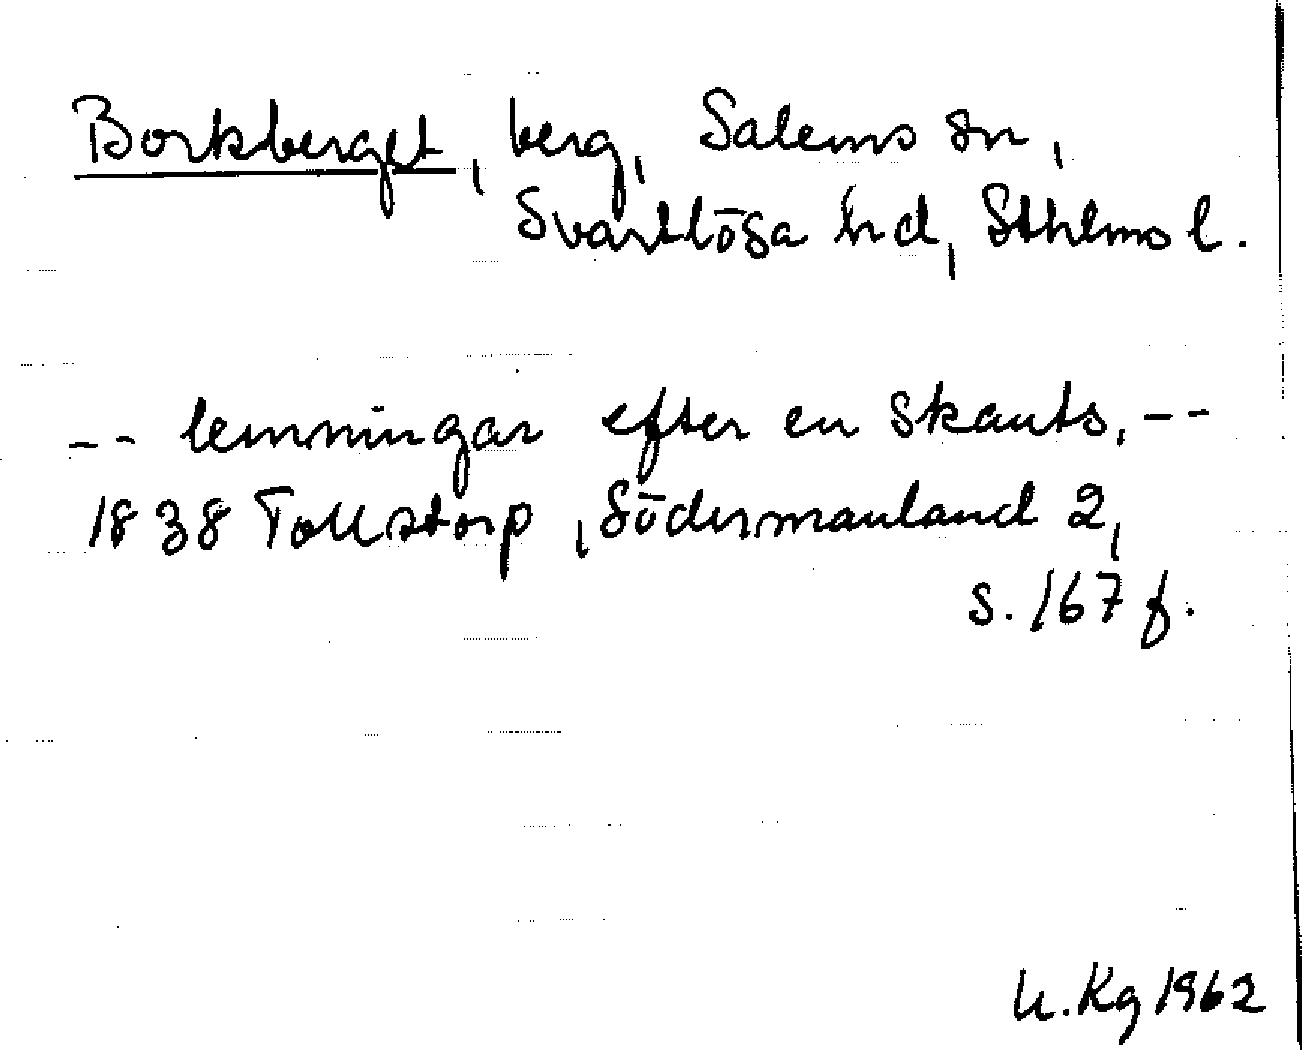 Borkberget, berg, Salems sn,
Svartlösa hd, Sthlms l.
-- lemningar efter en skants, --
1838 Tollstorp, Södermanland 2,
s. 167 f.
U. Kg 1962